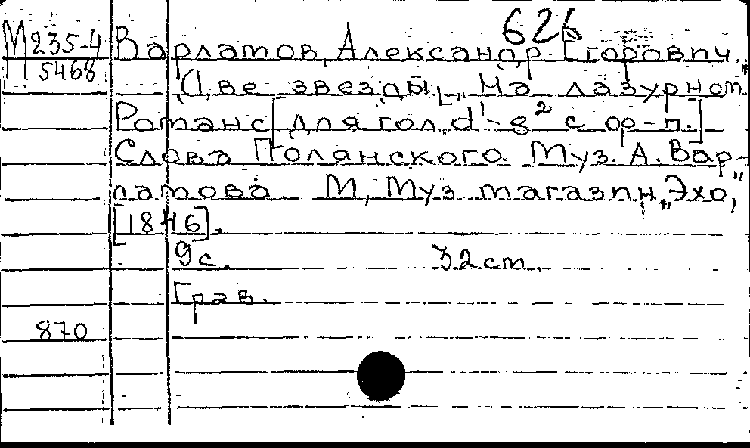 626
М 235-4 Варламов, Александр Егорович.
П 5468 Две звезды. „На лазурном
Романс [для гол. d¹-g² с ор-п.]
Слова Полянского. Муз. А. Вар-
ламова М., Муз магазин „Эхо",
[1846].
9с. 32 cm.
Грав.
870